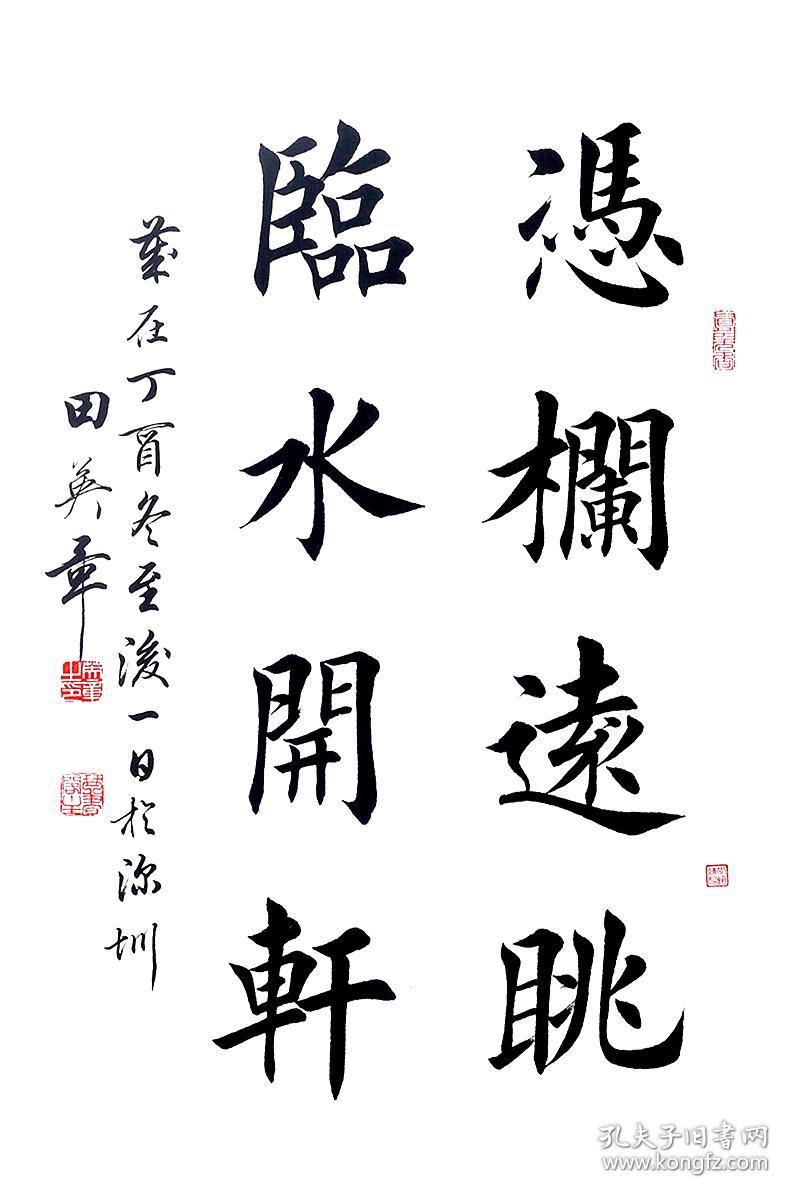 憑欄遠眺
臨水開軒
歲在丁酉冬至後一日於深圳
田英章
孔夫子旧书网
www.kongfz.com